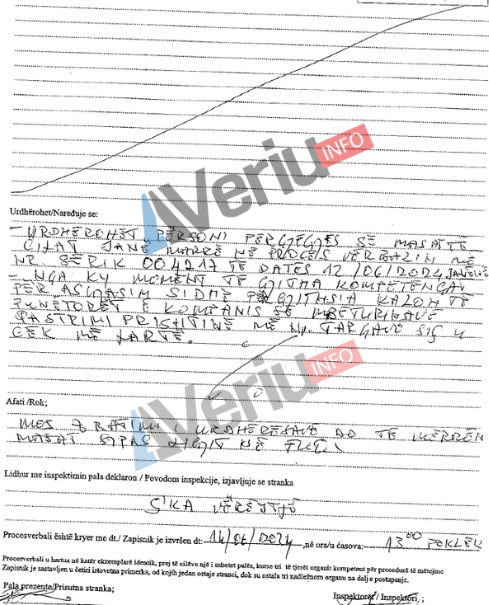 Veriu INFO
Urdhërohet/Naređuje se:
- URDHËROHET PERSONI PËRGJEGJËS SE MASAT TË
CILAT JANË MARRË NË PROCES VERBALIN ME
NR. SERIK 004217 TË DATËS 12/06/2024
- NGA KY MOMENT TË GJITHA KOMPETENCAT
PËR ASGJASIM SIDHE GJITHSIA KALOH TË
PUNËTORËT E KOMPANIS SË MBETURINAVE
PASTRIMI PRISHTINË ME TARGAVE SIÇ U
CEK MË LARTË.
Veriu INFO
Afati /Rok;
MOS ZBATIMI I URDHËRESAVE DO TË MERREN
MASAT SIPAS LIGJIT NË FUQI
Lidhur me inspektimin pala deklaron / Povodom inspekcije, izjavljuje se stranka
S'KA VËREJTJE
Procesverbali është kryer më dt./ Zapisnik je izvršen dt: 14/06/2024 ,në ora/u časova: 13 00 PEKLEK
Procesverbali u hartua në katër ekzemplarë identik, prej të cilëve një i mbetet palës, kurse tri të tjerët organit kompetent për procedurë të mëtejme
Zapisnik je sastavljen u četiri istovetna primerka, od kojih jedan ostaje stranci, dok su ostala tri nadležnom organu na dalje postupanje.
Pala prezente/Prisutna stranka; Inspektorët/ Inspektori, ;